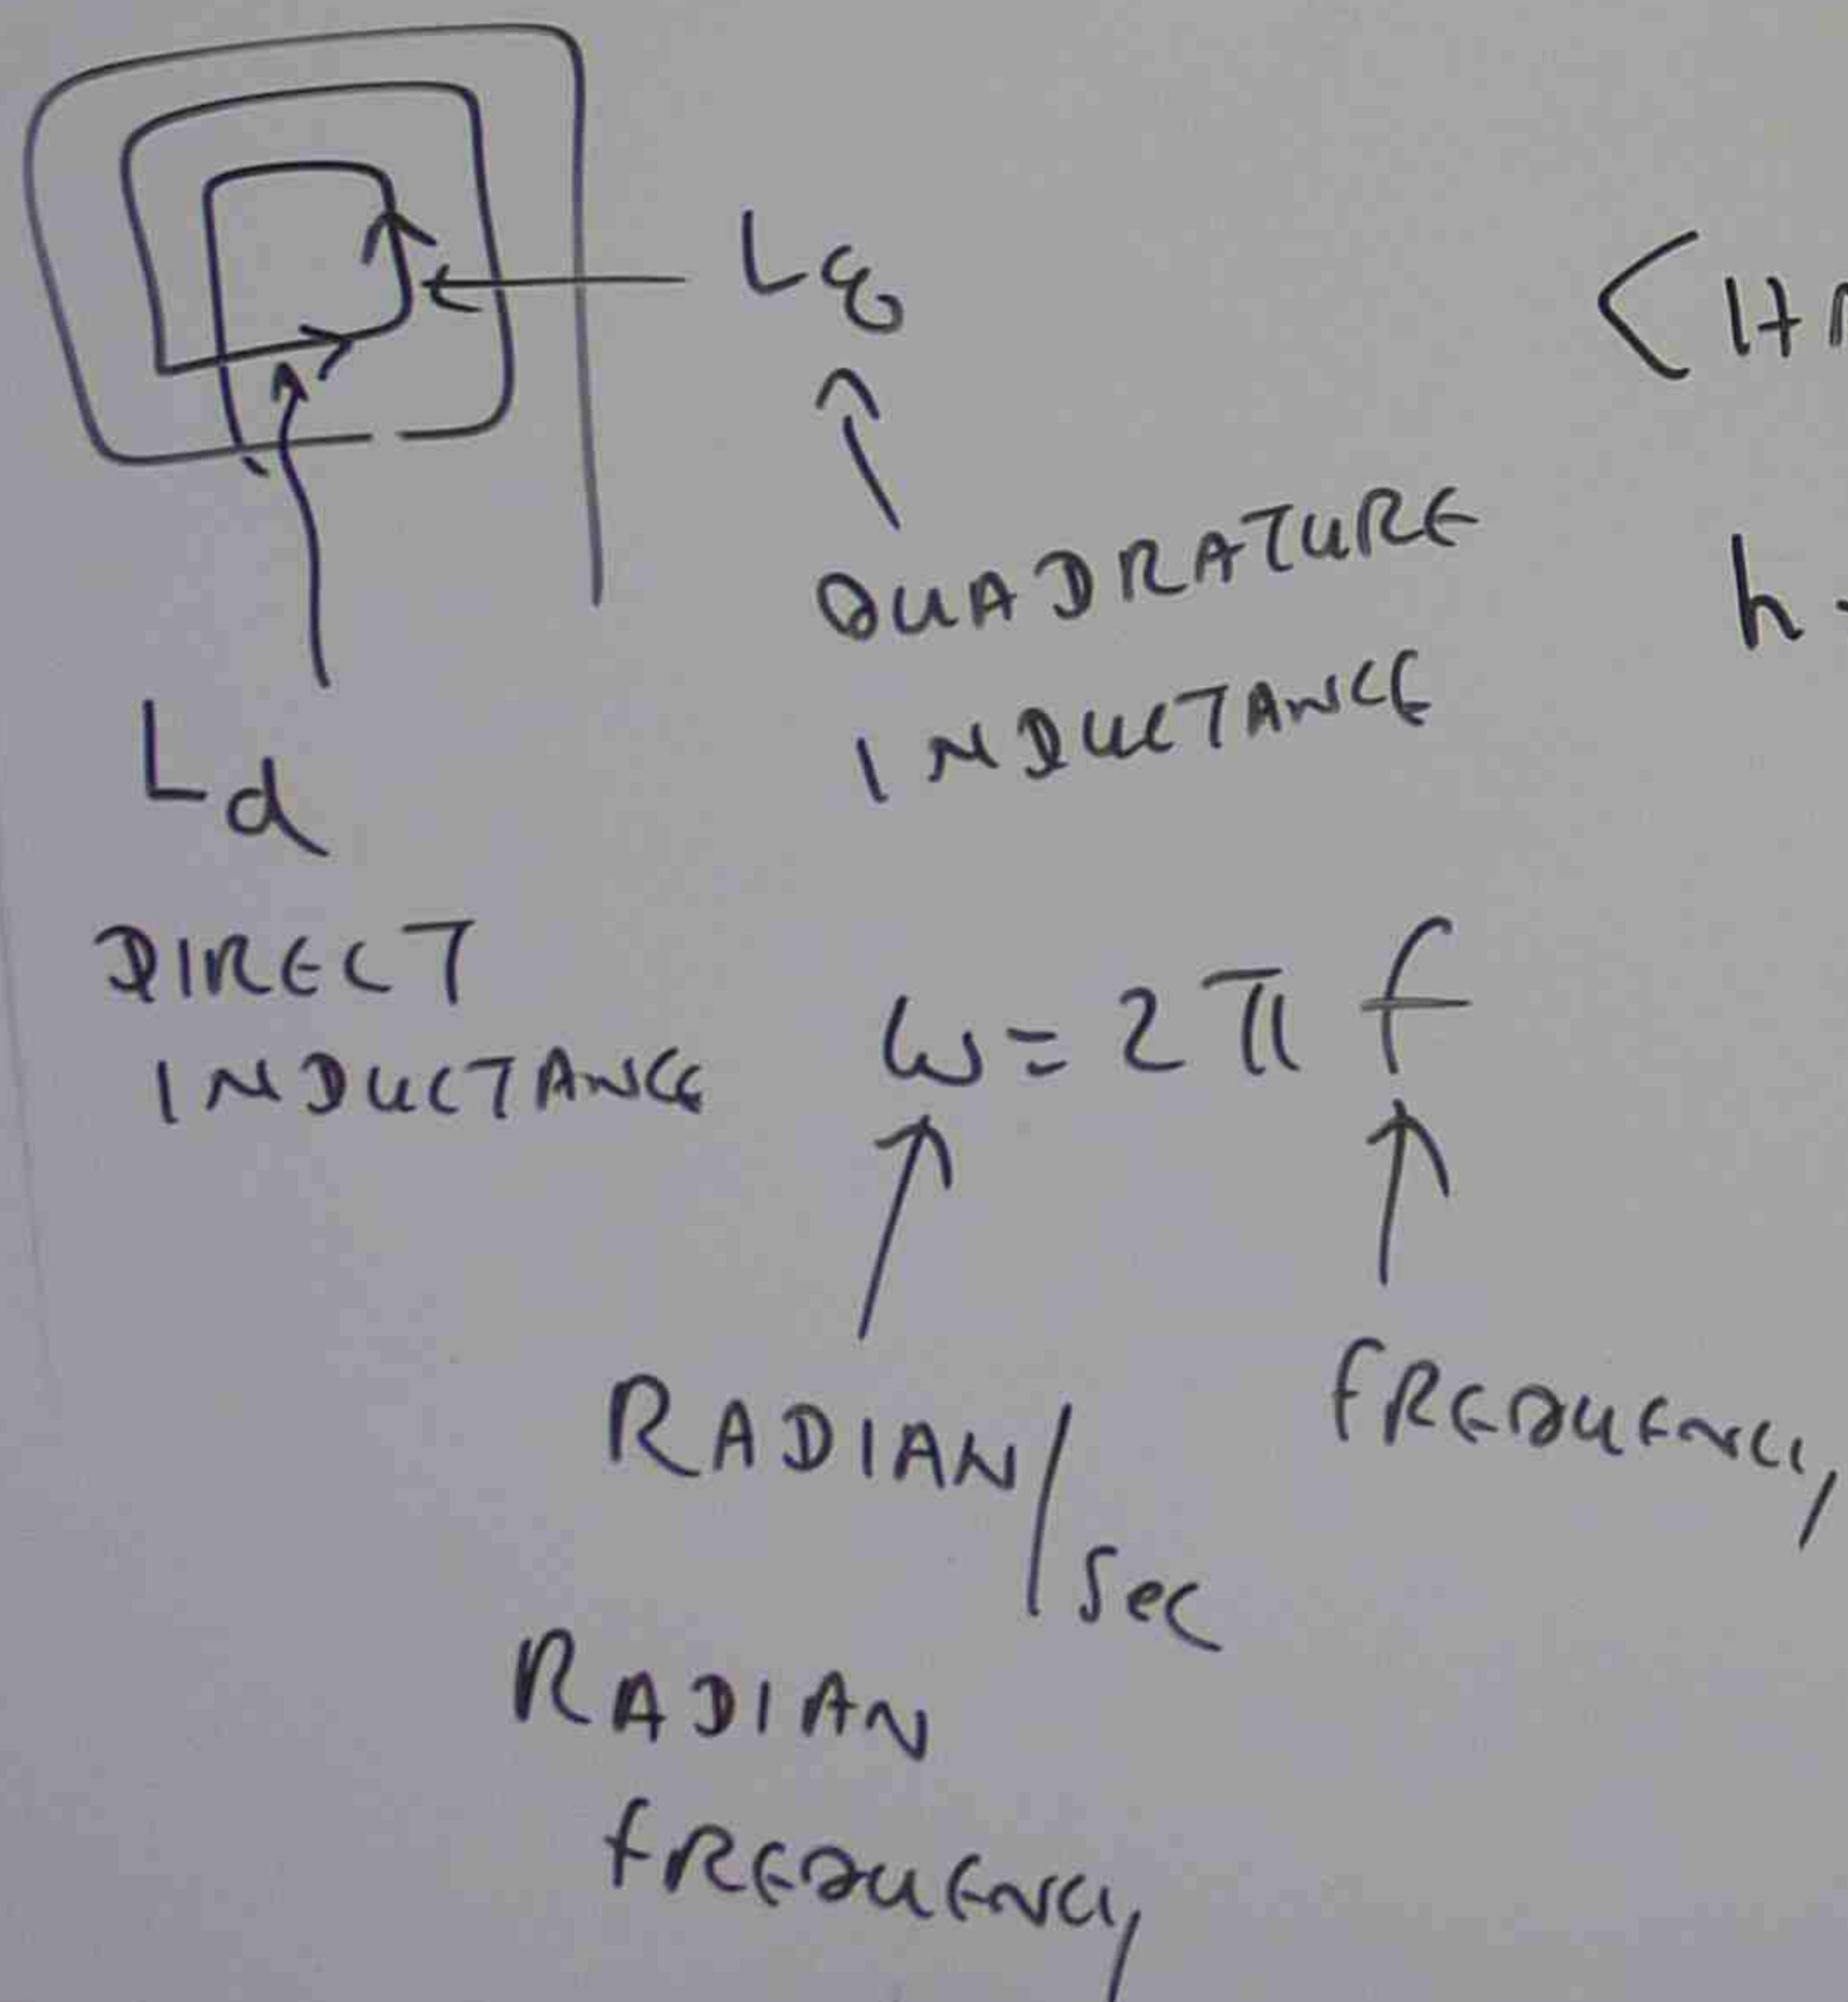 Lq
QUADRATURE
INDUCTANCE
Ld
DIRECT
INDUCTANCE
ω = 2 π f
RADIAN/sec
FREQUENCY
RADIAN
FREQUENCY
h